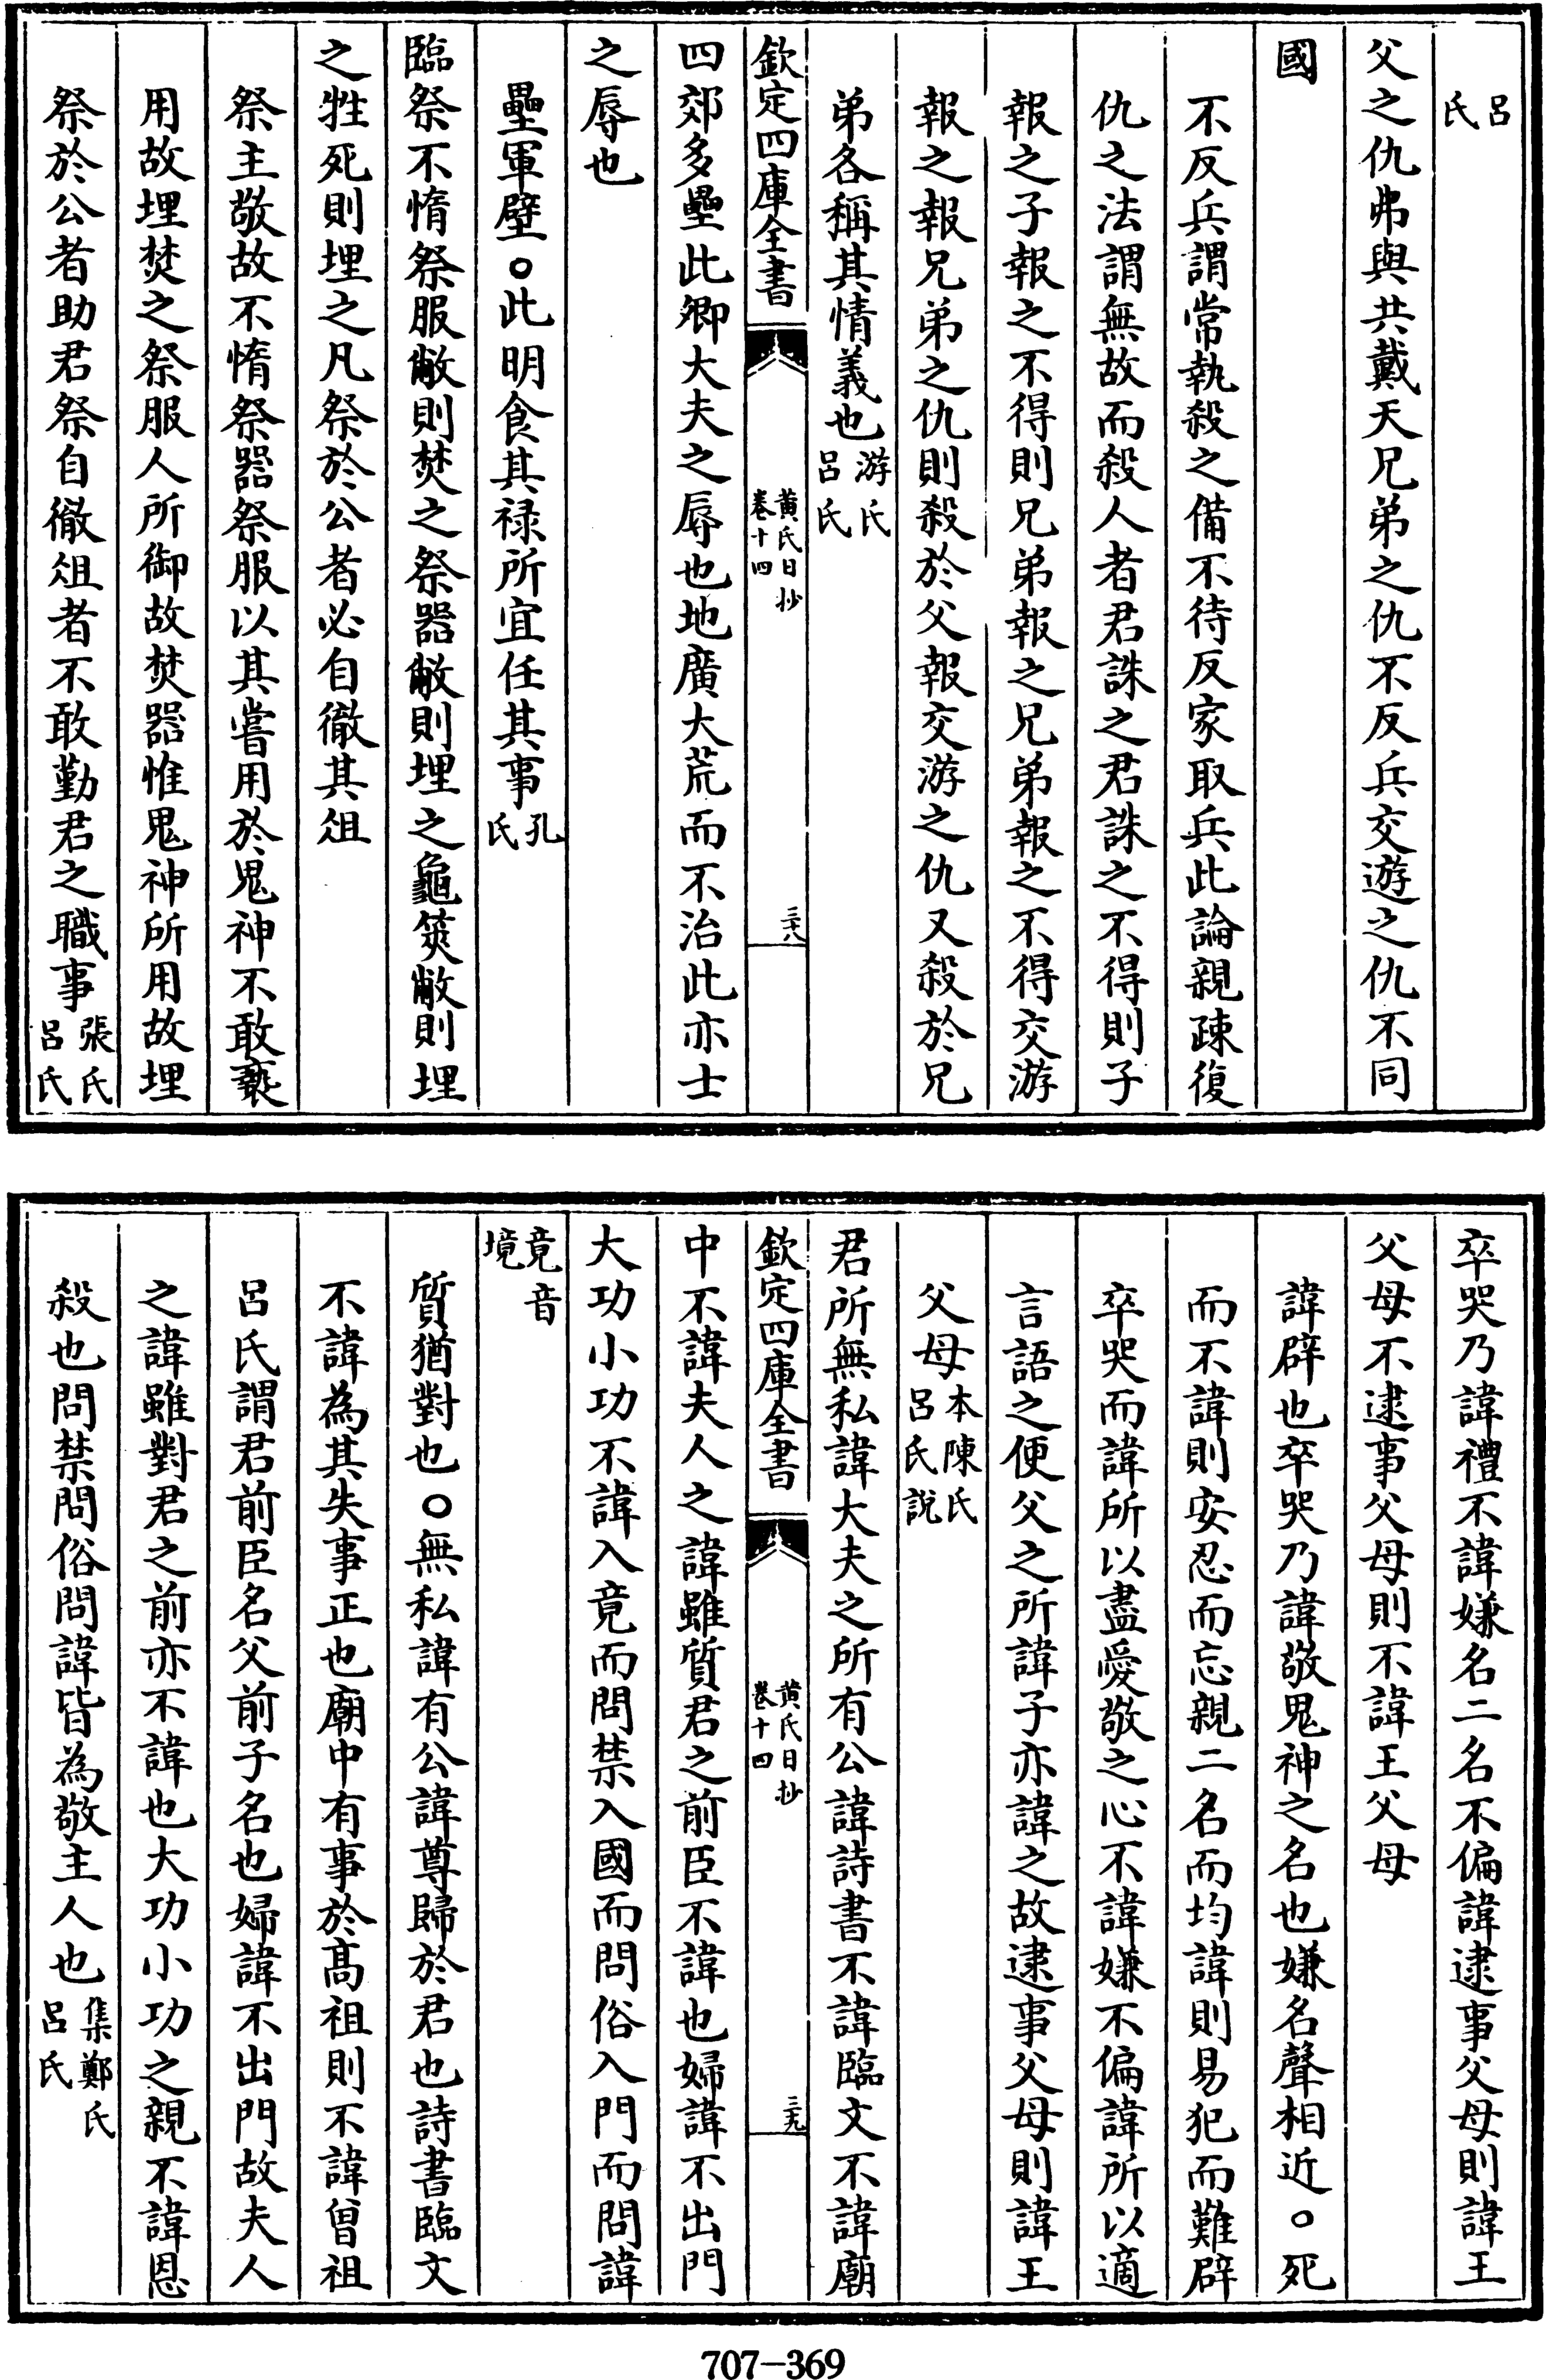 呂氏
父之仇弗與共戴天兄弟之仇不反兵交遊之仇不同
國
不反兵謂常執殺之備不待反家取兵此論親疎復
仇之法謂無故而殺人者君誅之君誅之不得則子
報之子報之不得則兄弟報之兄弟報之不得交游
報之報兄弟之仇則殺於父報交游之仇又殺於兄
弟各稱其情義也游氏呂氏
欽定四庫全書 黃氏日抄卷十四 三十八
四郊多壘此卿大夫之辱也地廣大荒而不治此亦士
之辱也
壘軍壁○此明食其祿所宜任其事孔氏
臨祭不惰祭服敝則焚之祭器敝則埋之龜筴敝則埋
之牲死則埋之凡祭於公者必自徹其俎
祭主敬故不惰祭器祭服以其嘗用於鬼神不敢褻
用故埋焚之祭服人所御故焚器惟鬼神所用故埋
祭於公者助君祭自徹俎者不敢勤君之職事張氏呂氏
卒哭乃諱禮不諱嫌名二名不偏諱逮事父母則諱王
父母不逮事父母則不諱王父母
諱辟也卒哭乃諱敬鬼神之名也嫌名聲相近○死
而不諱則安忍而忘親二名而均諱則易犯而難辟
卒哭而諱所以盡愛敬之心不諱嫌不偏諱所以適
言語之便父之所諱子亦諱之故逮事父母則諱王
父母本陳氏呂氏說
君所無私諱大夫之所有公諱詩書不諱臨文不諱廟
欽定四庫全書 黃氏日抄卷十四 三十九
中不諱夫人之諱雖質君之前臣不諱也婦諱不出門
大功小功不諱入竟而問禁入國而問俗入門而問諱
竟音境
質猶對也○無私諱有公諱尊歸於君也詩書臨文
不諱為其失事正也廟中有事於高祖則不諱曾祖
呂氏謂君前臣名父前子名也婦諱不出門故夫人
之諱雖對君之前亦不諱也大功小功之親不諱恩
殺也問禁問俗問諱皆為敬主人也集鄭氏呂氏
707-369